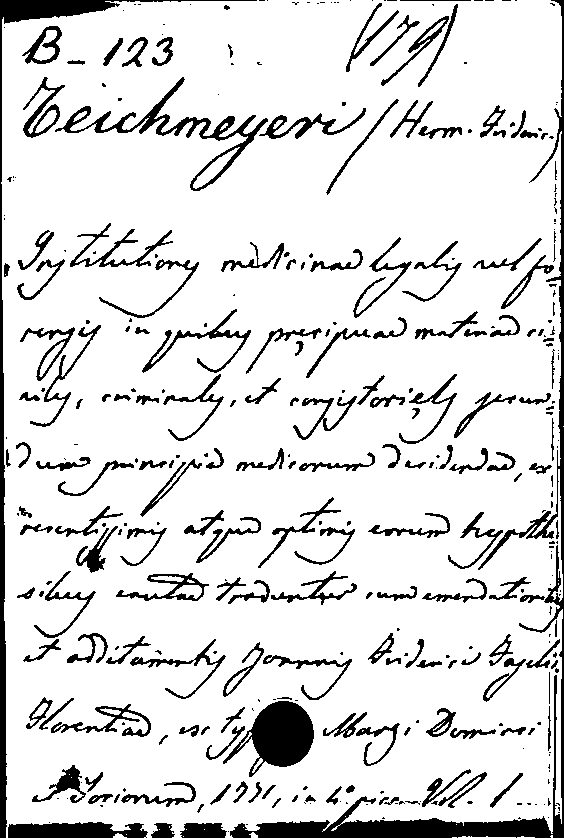 B_ 123 (179)
Teichmeyeri (Herm. Frideric.)
Institutiones medicinae legalis vel fo-
rensis in quibus precipuae materiae ci-
viles, criminales, et consistorieles secun-
dum principia medicorum decidendae, ex
recentissimis atque optimis eorum hypothe-
sibus erutae traduntur cum emendationibus
et additamentis Joannis Friderici Faselii
Florentiae, ex typ Marzi Dominici
et Sociorum, 1771, in 4º Vol. 1